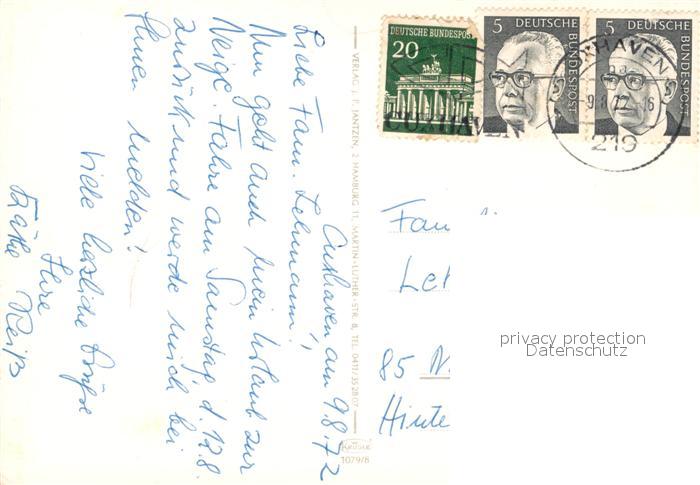 Cuxhaven am 9.8.72
Liebe Fam. Lehmann!
Nun geht auch mein Urlaub zur
Neige. Fahre am Samstag, d. 12.8.
zurück und werde mich bei
Ihnen melden!
Viele herzliche Grüße
Ihre
Käthe Reiß
VERLAG J. P. JANTZEN, 2 HAMBURG 11, MARTIN-LUTHER-STR. 8, TEL. 0411/35 28 07
KRÜGER
1079/8
DEUTSCHE BUNDESPOST
20
5 DEUTSCHE
BUNDESPOST
5 DEUTSCHE
BUNDESPOST
CUXHAVEN
XHAVEN
-9.8.72-16
219
Fam
Leh
85 N
Hinte
privacy protection
Datenschutz